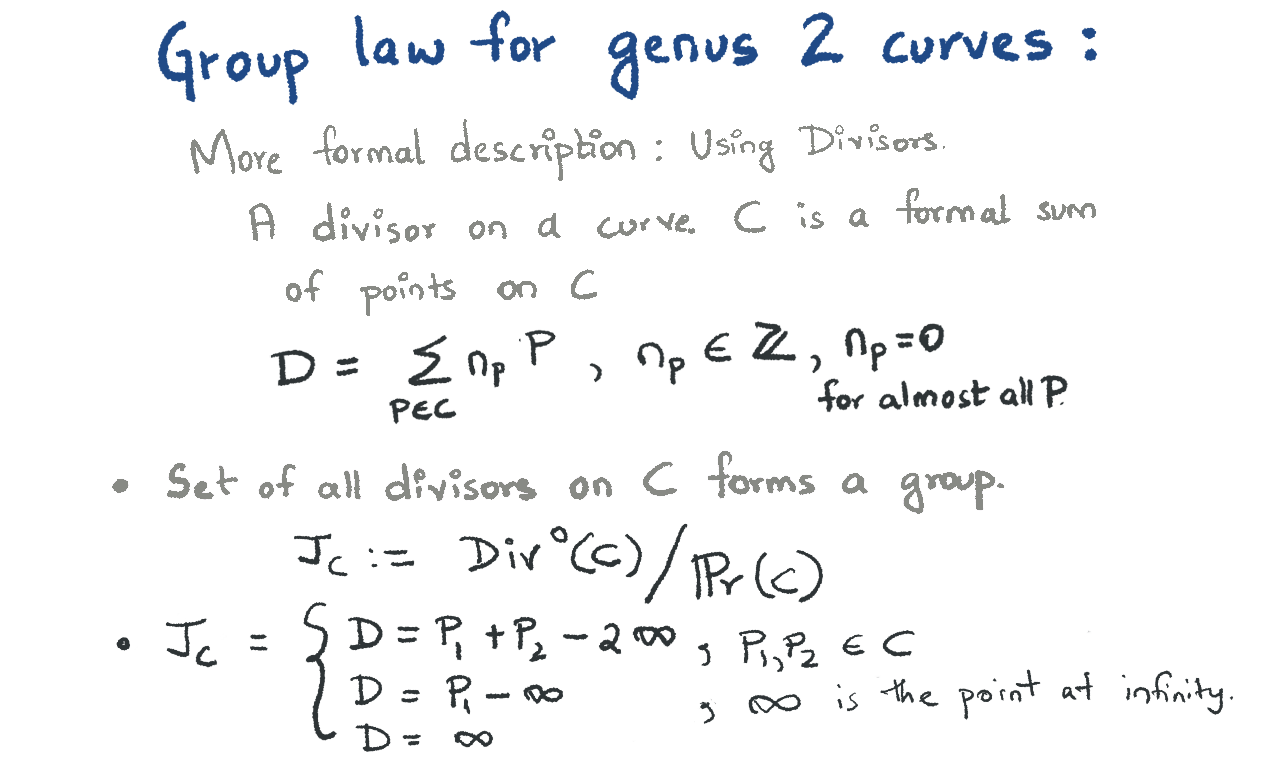 Group law for genus 2 curves :
More formal description : Using Divisors.
A divisor on a curve C is a formal sum
of points on C
D = ∑ n_P P , n_P ∈ ℤ, n_P = 0
P∈C for almost all P.
• Set of all divisors on C forms a group.
J_C := Div°(C) / ℙr(C)
• J_C = { D = P₁ + P₂ − 2∞ , P₁, P₂ ∈ C
D = P₁ − ∞ , ∞ is the point at infinity.
D = ∞